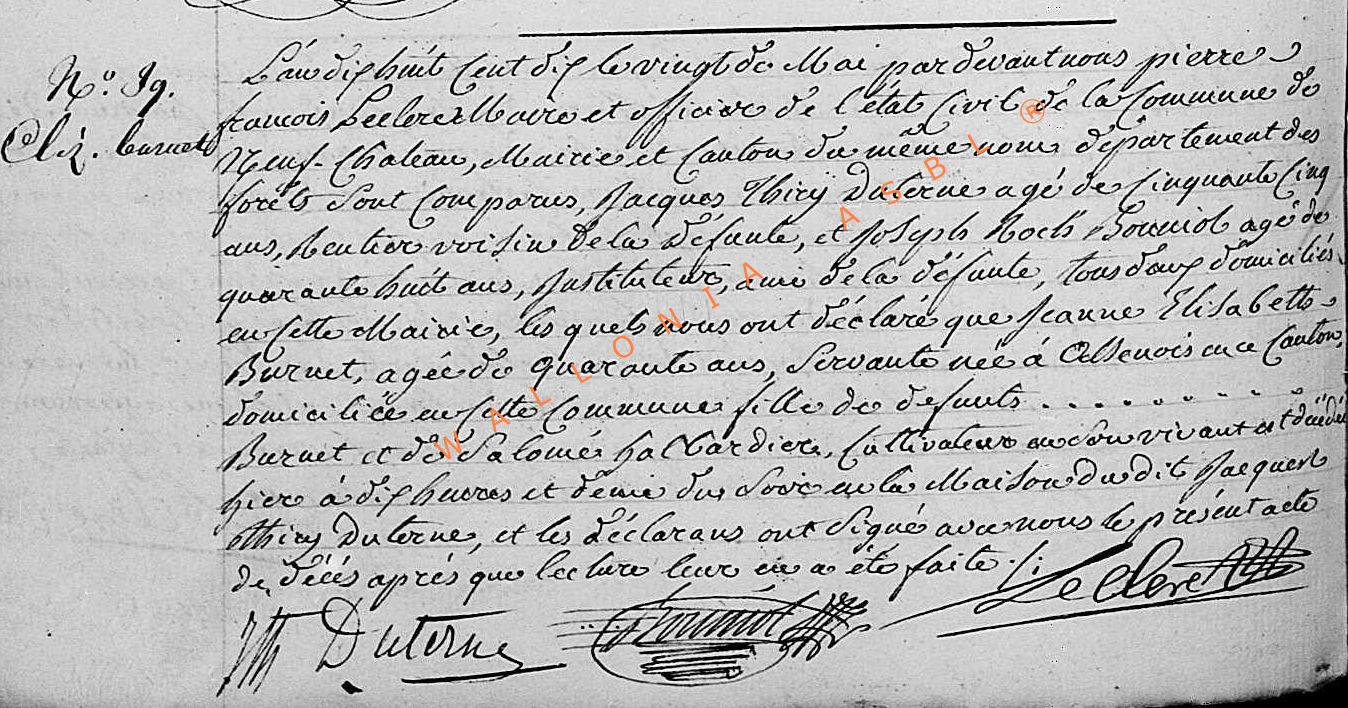 N.° 39.
Eliz. burnet
L'an dix huit Cent dix le vingt de Mai par devant nous pierre
francois Leclerc Maire et officier de l'état Civil de la Commune de
Neuf-Chateau, Mairie et Canton du même nom département des
forêts Sont Comparus, Jacques Thiry Duterne agé de Cinquante Cinq
ans, Rentier voisin de la Défunte, et Joseph Roch Bourniol agé de
quarante huit ans, Instituteur, ami de la défunte, tous deux domiciliés
en Cette Mairie, les quels nous ont déclaré que Jeanne Elisabeth
Burnet, agée de quarante ans, Servante née à Assenois en ce Canton,
domiciliée en Cette Commune fille de defunts . . . . . . . . .
Burnet et de Salomé halbardier, Cultivateur en Son vivant est décédée
hier à dix heures et demie du Soir en la Maison du dit Jacques
thiry Duterne, et les déclarans ont Signé avec nous le présent acte
de Décés aprés que lecture leur en a été faite ./.
JTh Duterne
Bourniol
Leclerc
WALLONIA ASBL ®